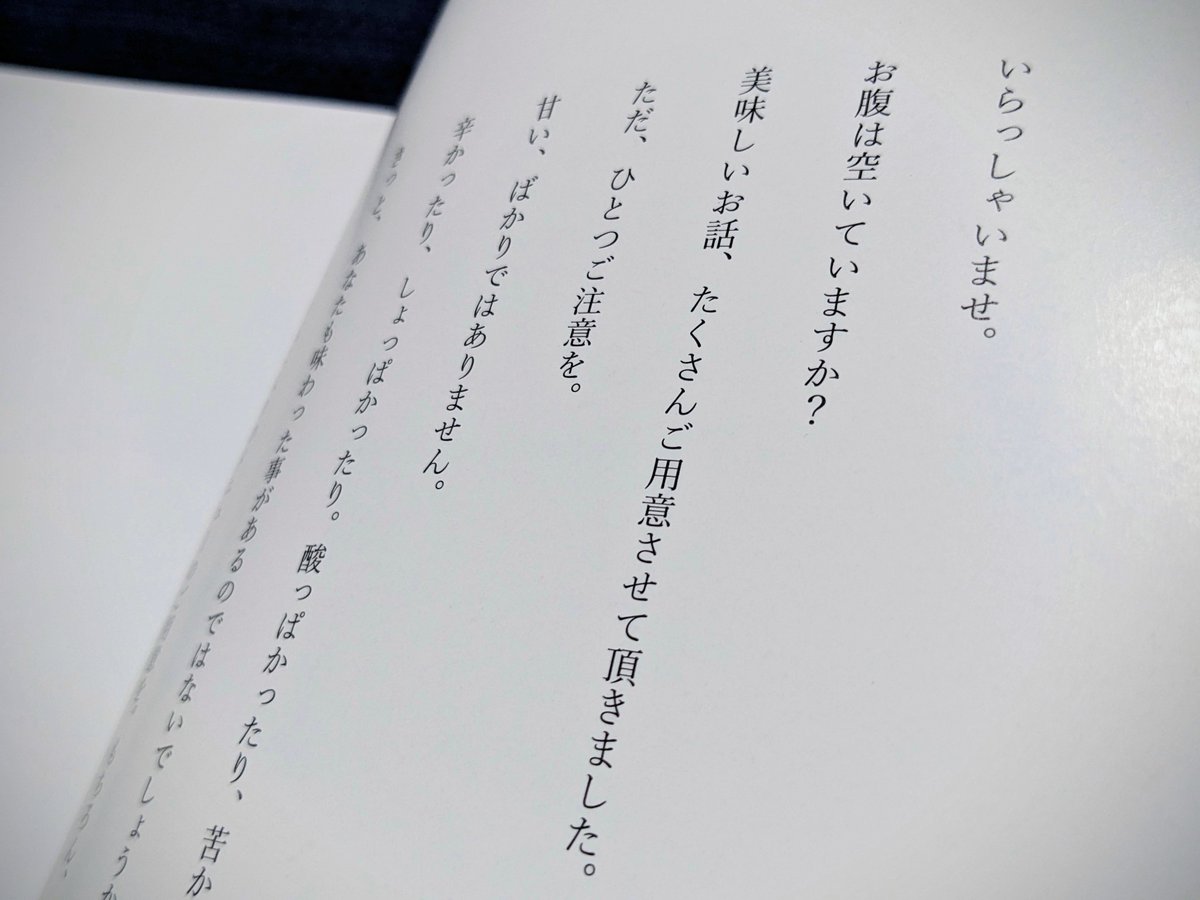 いらっしゃいませ。
お腹は空いていますか？
美味しいお話、たくさんご用意させて頂きました。
ただ、ひとつご注意を。
甘い、ばかりではありません。
辛かったり、しょっぱかったり。酸っぱかったり、苦か
きっと、あなたも味わった事があるのではないでしょうか
もちろん、